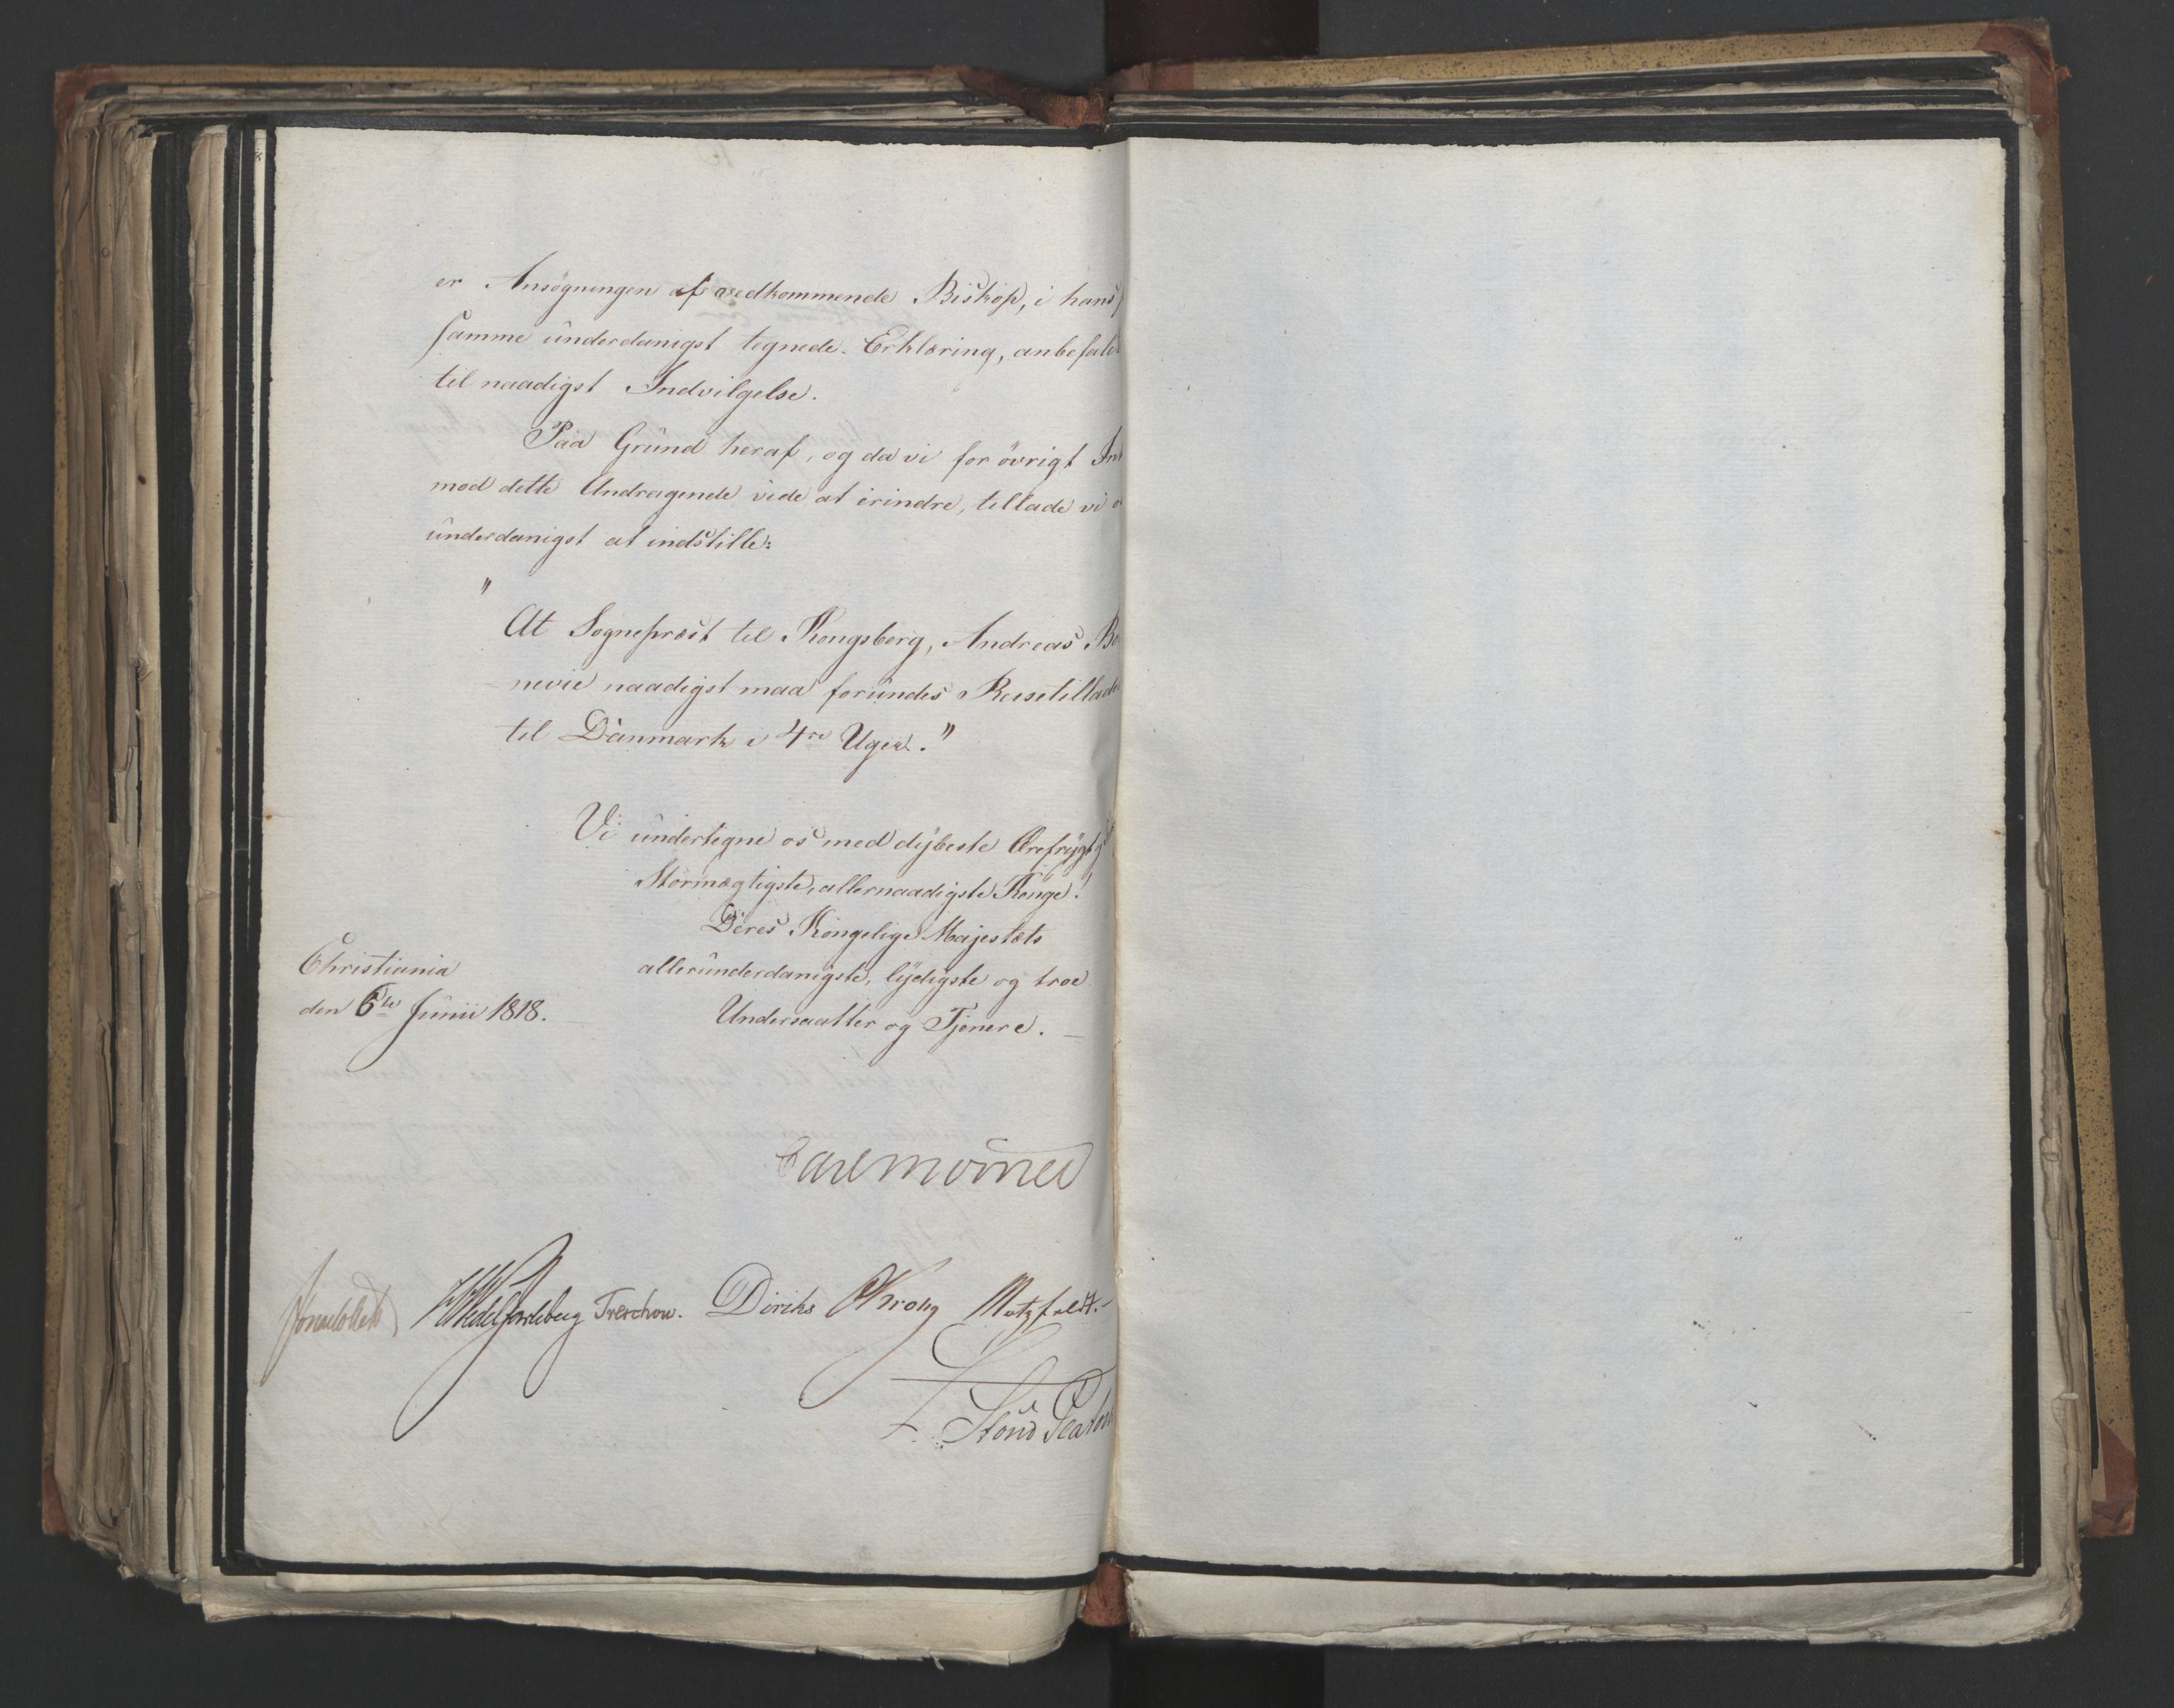 er Ansögningen af vedkommende Biskop, i hans
samme underdanigst tegnede Erklæring, anbefalet
til naadigst Indvilgelse.
Paa Grund heraf, og da vi for övrigt Int
mod dette Andragende vide at erindre, tillade vi o
underdanigst at indstille:
"
At Sognepræst til Kongsberg, Andreas Bo
nevie naadigst maa forundes Reisetillade
til Danmark i 4re Uger."
Vi undertegne os med dybeste Ærefrygt
Stormægtigste, allernaadigste Konge!
Deres Kongelige Majestæts
allerunderdanigste, lydigste og troe
Undersaatter og Tjenere.
Christiania
den 6te Junii 1818.
Carl Mörner
Jonas Collett HWedel Jarlsberg Treschow. Diriks Krohg Motzfeldt.